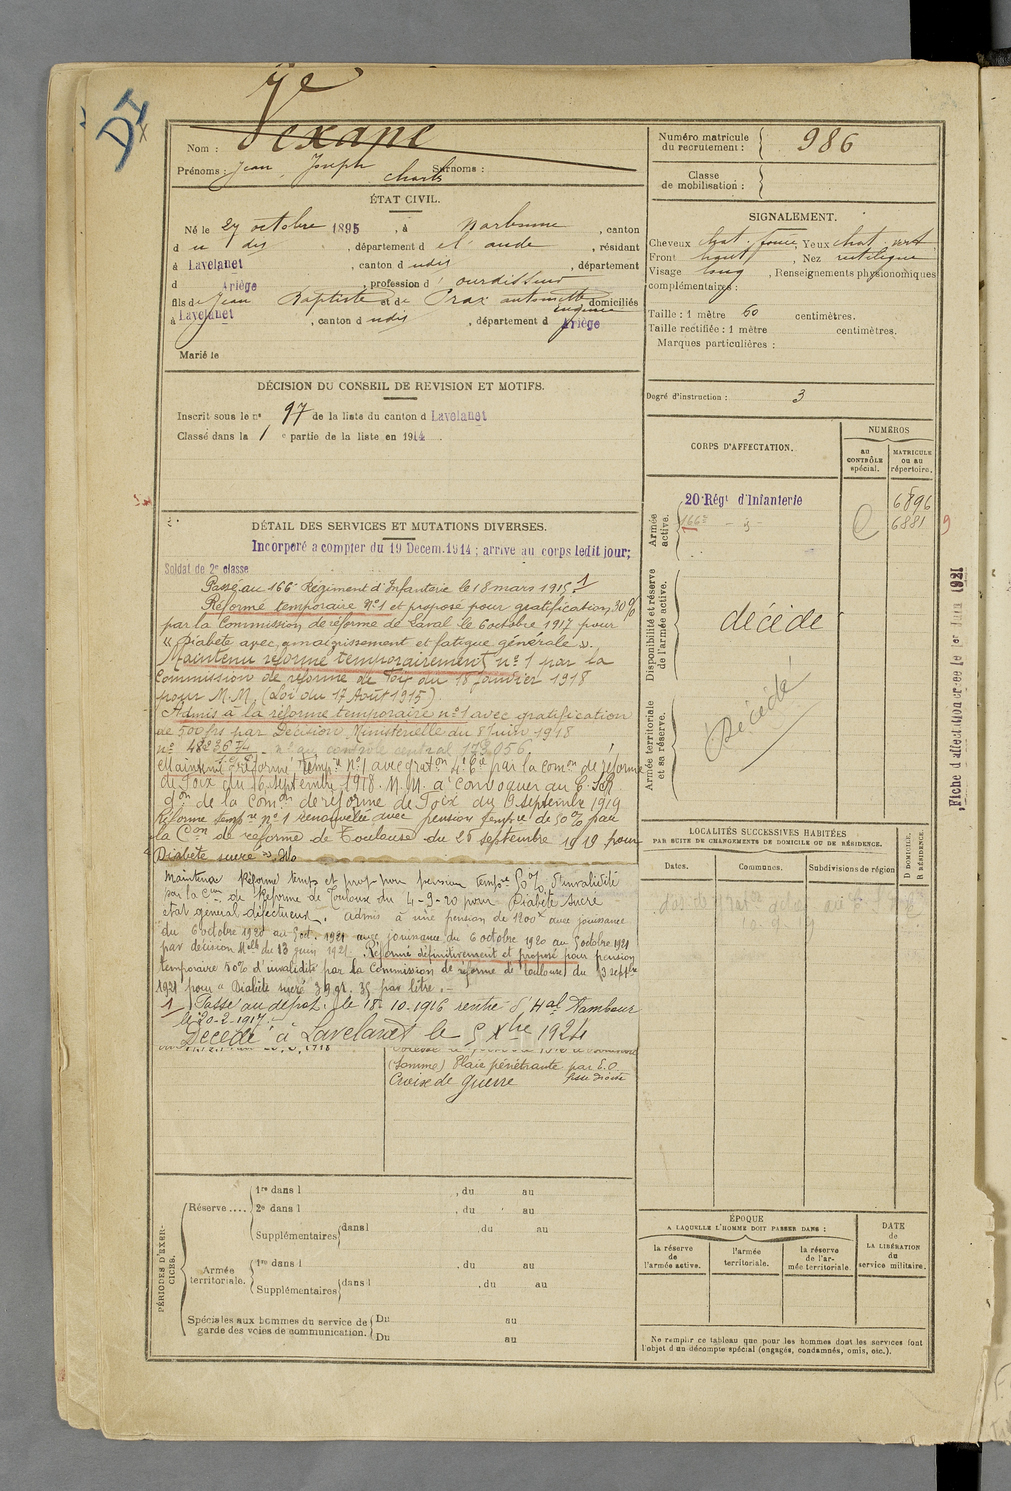 DI
Nom : Vexane
Prénoms : Jean, Joseph Charles Surnoms :
Numéro matricule du recrutement : 986
Classe de mobilisation :
ÉTAT CIVIL.
Né le 27 octobre 1895, à Narbonne, canton
d u dis, département d e l'aude, résidant
à Lavelanet, canton d udis, département
d Ariège, profession d' ourdisseur
fils de Jean Baptiste et de Prax antoinette Eugénie domiciliés
à Lavelanet, canton d udis, département d Ariège
Marié le
SIGNALEMENT.
Cheveux chat. foncé, Yeux chat. vert
Front haut, Nez rectiligne
Visage long, Renseignements physionomiques
complémentaires :
Taille : 1 mètre 60 centimètres.
Taille rectifiée : 1 mètre centimètres.
Marques particulières :
Degré d'instruction : 3
DÉCISION DU CONSEIL DE REVISION ET MOTIFS.
Inscrit sous le n° 97 de la liste du canton d Lavelanet
Classé dans la 1e partie de la liste en 1914.
CORPS D'AFFECTATION.
NUMÉROS
au CONTRÔLE spécial.
MATRICULE ou au répertoire.
Armée active.
20 Régt d'Infanterie 6896
166e - 3 - 6881 9
Disponibilité et réserve de l'armée active.
décédé
Armée territoriale et sa réserve.
Décédé
Fiche d'affectation créée le 1er Juin 1921
DÉTAIL DES SERVICES ET MUTATIONS DIVERSES.
Incorporé a compter du 19 Decem.1914 ; arrivé au corps ledit jour;
Soldat de 2e classe
Passé au 166e Régiment d'Infanterie le 18 mars 1915 1
Réforme temporaire N°1 et proposé pour gratification 30%
par la Commission de réforme de Laval le 6 octobre 1917 pour
« Diabète avec amaigrissement et fatigue générale ».
Maintenu réforme temporairement n° 1 par la
Commission de réforme de Foix du 18 Janvier 1918
pour M.M. (Loi du 17 Août 1915).
Admis à la réforme temporaire n°1 avec gratification
de 500 frs par Décision Ministérielle du 8 juin 1918
n° au contrôle central 173.056.
Maintenu réformé tempre N°1 avec graton par la comon de réforme
de Foix du 16 septembre 1918. M.M. à convoquer au C.S.R.
de la Comon de réforme de Foix du 6 septembre 1919
Réforme tempre n° 1 renouvelée avec pension tempre de 50% par
la Con de réforme de Toulouse du 26 septembre 1919 pour
Diabète sucré
Maintenue Réforme temps et prop pour pension tempre 50% d'invalidité
par la Con de Réforme de Toulouse du 4-9-20 pour Diabète sucré
état général défectueux. admis à une pension de 1200 avec jouissance
du 6 octobre 1920 au 5 oct. 1921 avec jouissance du 6 octobre 1920 au 5 octobre 1921
par décision Mlle du 13 juin 1921. Réformé définitivement et proposé pour pension
temporaire 50% d'invalidité par la Commission de réforme de Toulouse du 3 septbre
1921 pour « Diabète sucré 39 gr. 35 par litre. -
1 Passé au dépôt le 18-10-1916 rentré d'Hal
le 20-2-1917.
Décédé à Lavelanet le 5 Xbre 1924
(Somme) Plaie pénétrante par E.O. fesse droite
Croix de guerre
LOCALITÉS SUCCESSIVES HABITÉES
PAR SUITE DE CHANGEMENTS DE DOMICILE OU DE RÉSIDENCE.
Dates. Communes. Subdivisions de région
D DOMICILE. R RÉSIDENCE.
PÉRIODES D'EXERCICES.
Réserve....
1re dans l , du au
2e dans l , du au
Supplémentaires dans l , du au
Armée territoriale.
1re dans l , du au
Supplémentaires dans l , du au
Spéciales aux hommes du service de garde des voies de communication.
Du au
Du au
ÉPOQUE
A LAQUELLE L'HOMME DOIT PASSER DANS :
la réserve de l'armée active.
l'armée territoriale.
la réserve de l'armée territoriale.
DATE de LA LIBÉRATION du service militaire.
Ne remplir ce tableau que pour les hommes dont les services font
l'objet d'un décompte spécial (engagés, condamnés, omis, etc.).